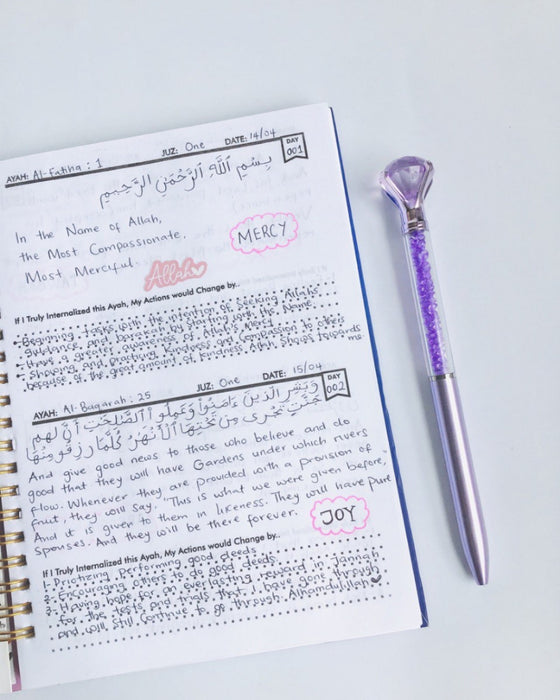 AYAH: Al-Fatiha : 1 JUZ: One DATE: 14/04 DAY 001
بِسْمِ ٱللَّهِ ٱلرَّحْمَٰنِ ٱلرَّحِيمِ
In the Name of Allah,
the Most Compassionate,
Most Merciful
MERCY
Allah
If I Truly Internalized this Ayah, My Actions would Change by..
• Beginning tasks with the intention of seeking Allah's
guidance and barakah by starting with His Name.
• Have a greater awareness of Allah's Mercy
• Showing and practicing kindness and compassion to others
because of the great amount of kindness Allah shows towards me
AYAH: Al-Baqarah : 25 JUZ: One DATE: 15/04 DAY 002
وَبَشِّرِ ٱلَّذِينَ ءَامَنُوا۟ وَعَمِلُوا۟ ٱلصَّٰلِحَٰتِ أَنَّ لَهُمْ
جَنَّٰتٍ تَجْرِى مِن تَحْتِهَا ٱلْأَنْهَٰرُ كُلَّمَا رُزِقُوا۟ مِنْهَا
And give good news to those who believe and do
good that they will have Gardens under which rivers
flow. Whenever they are provided with a provision of
fruit, they will say, "This is what we were given before,"
And it is given to them in likeness. They will have pure
spouses. And they will be there forever.
JOY
If I Truly Internalized this Ayah, My Actions would Change by..
1. Priotizing performing good deeds
2. Encouraging others to do good deeds.
3. Having hope for an everlasting reward in Jannah
for the tests and trials that I have gone through
and will still continue to go through. Alhamdulillah